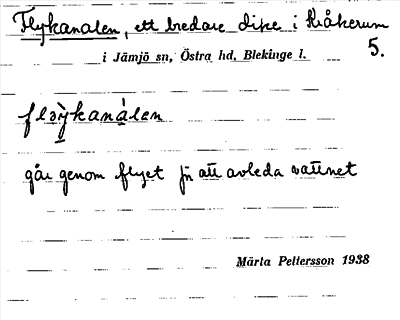 Flykanalen, ett bredare dike i Kråkerum
i Jämjö sn, Östra hd, Blekinge l. 5.
fləỳkanálen
går genom flyet fr att avleda vattnet
Märta Pettersson 1938